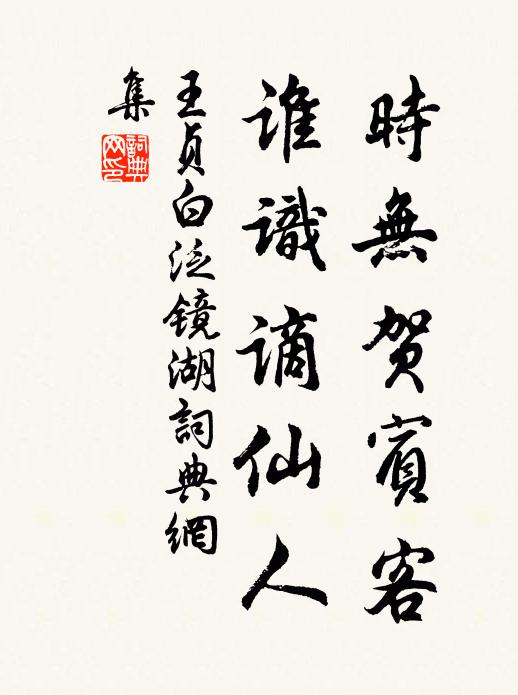 時無賀賓客
誰識謫仙人
王貞白泛镜湖詞典網
集
詞典
网印